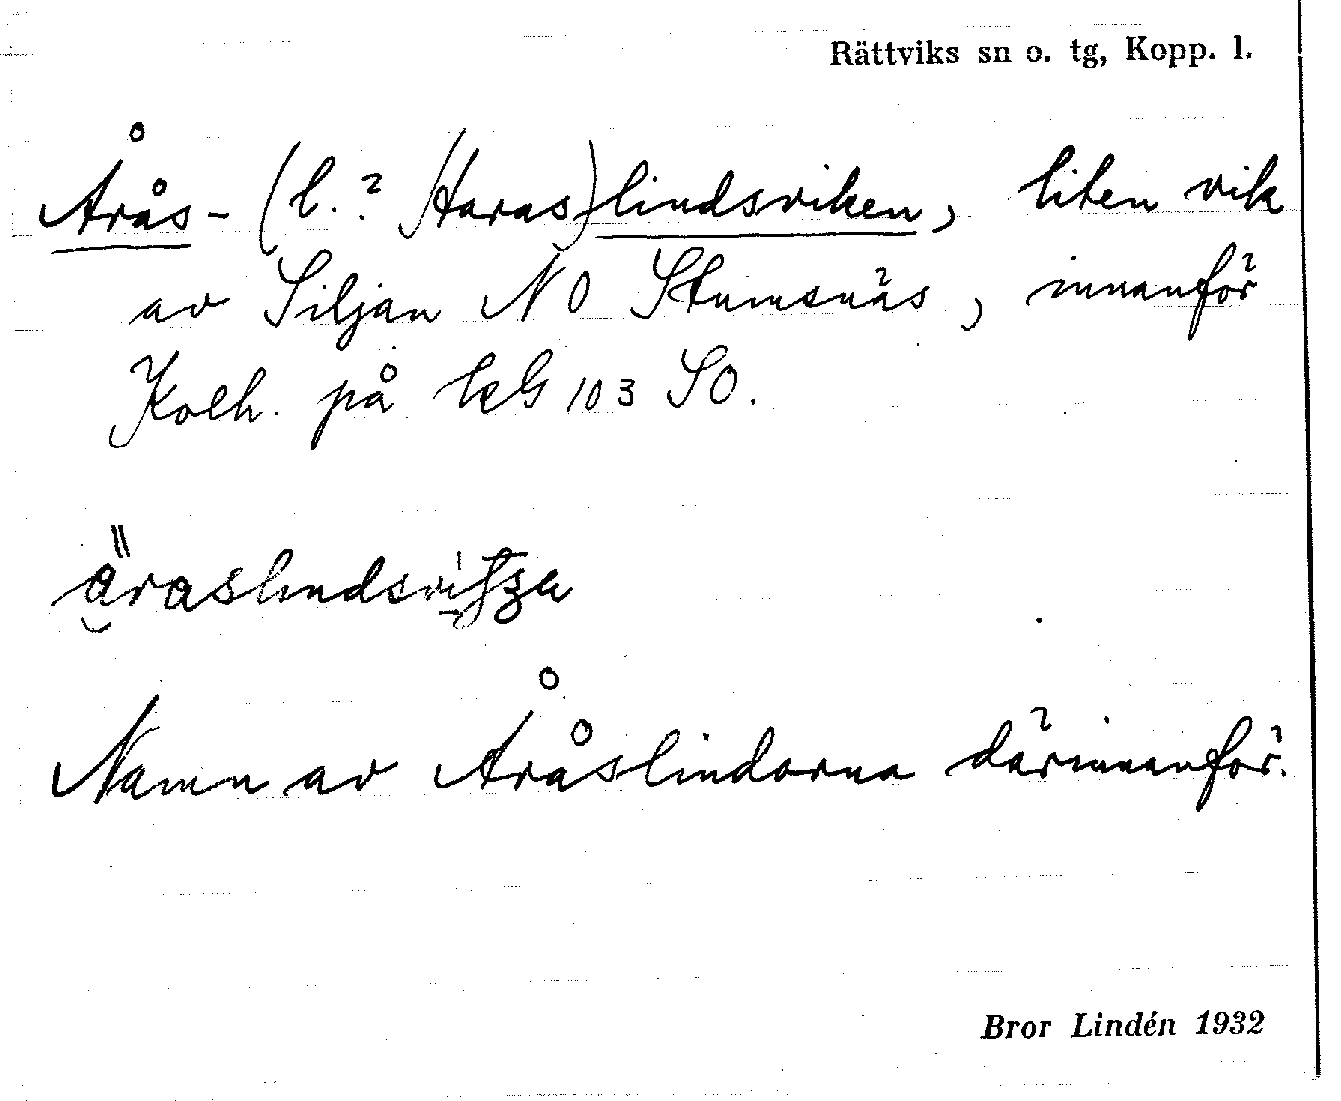 Rättviks sn o. tg, Kopp. l.
Årås- (l.? Haras)lindsviken, liten vik
av Siljan NO Stumsnäs, innanför
Kolh. på lcG 103 SO.
Namn av Åråslindorna därinnanför.
Bror Lindén 1932